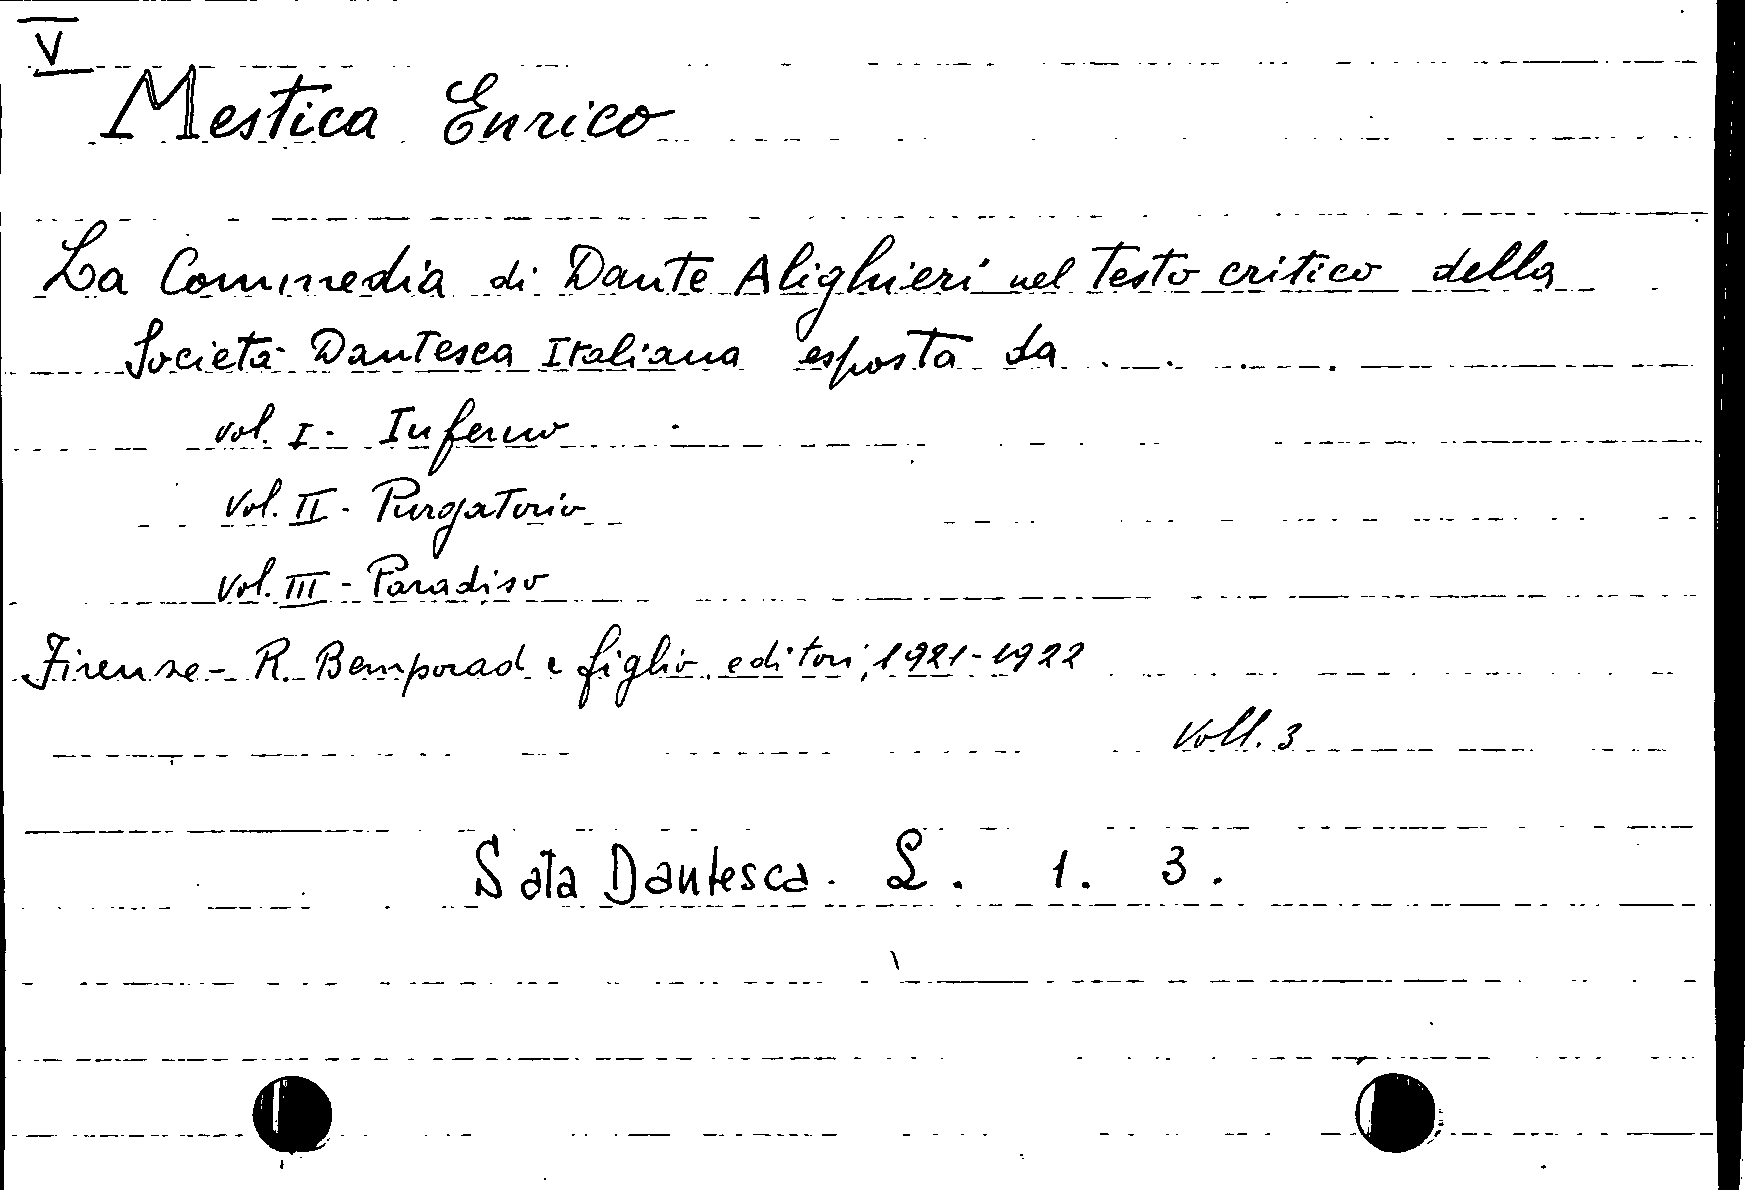 V
Mestica Enrico
La Commedia di Dante Alighieri nel Testo critico della
Società Dantesca Italiana esposta da . . . . .
vol. I - Inferno
vol. II - Purgatorio
vol. III - Paradiso
Firenze - R. Bemporad e figlio, editori, 1921-1922
Voll. 3
Sala Dantesca. L. 1. 3.